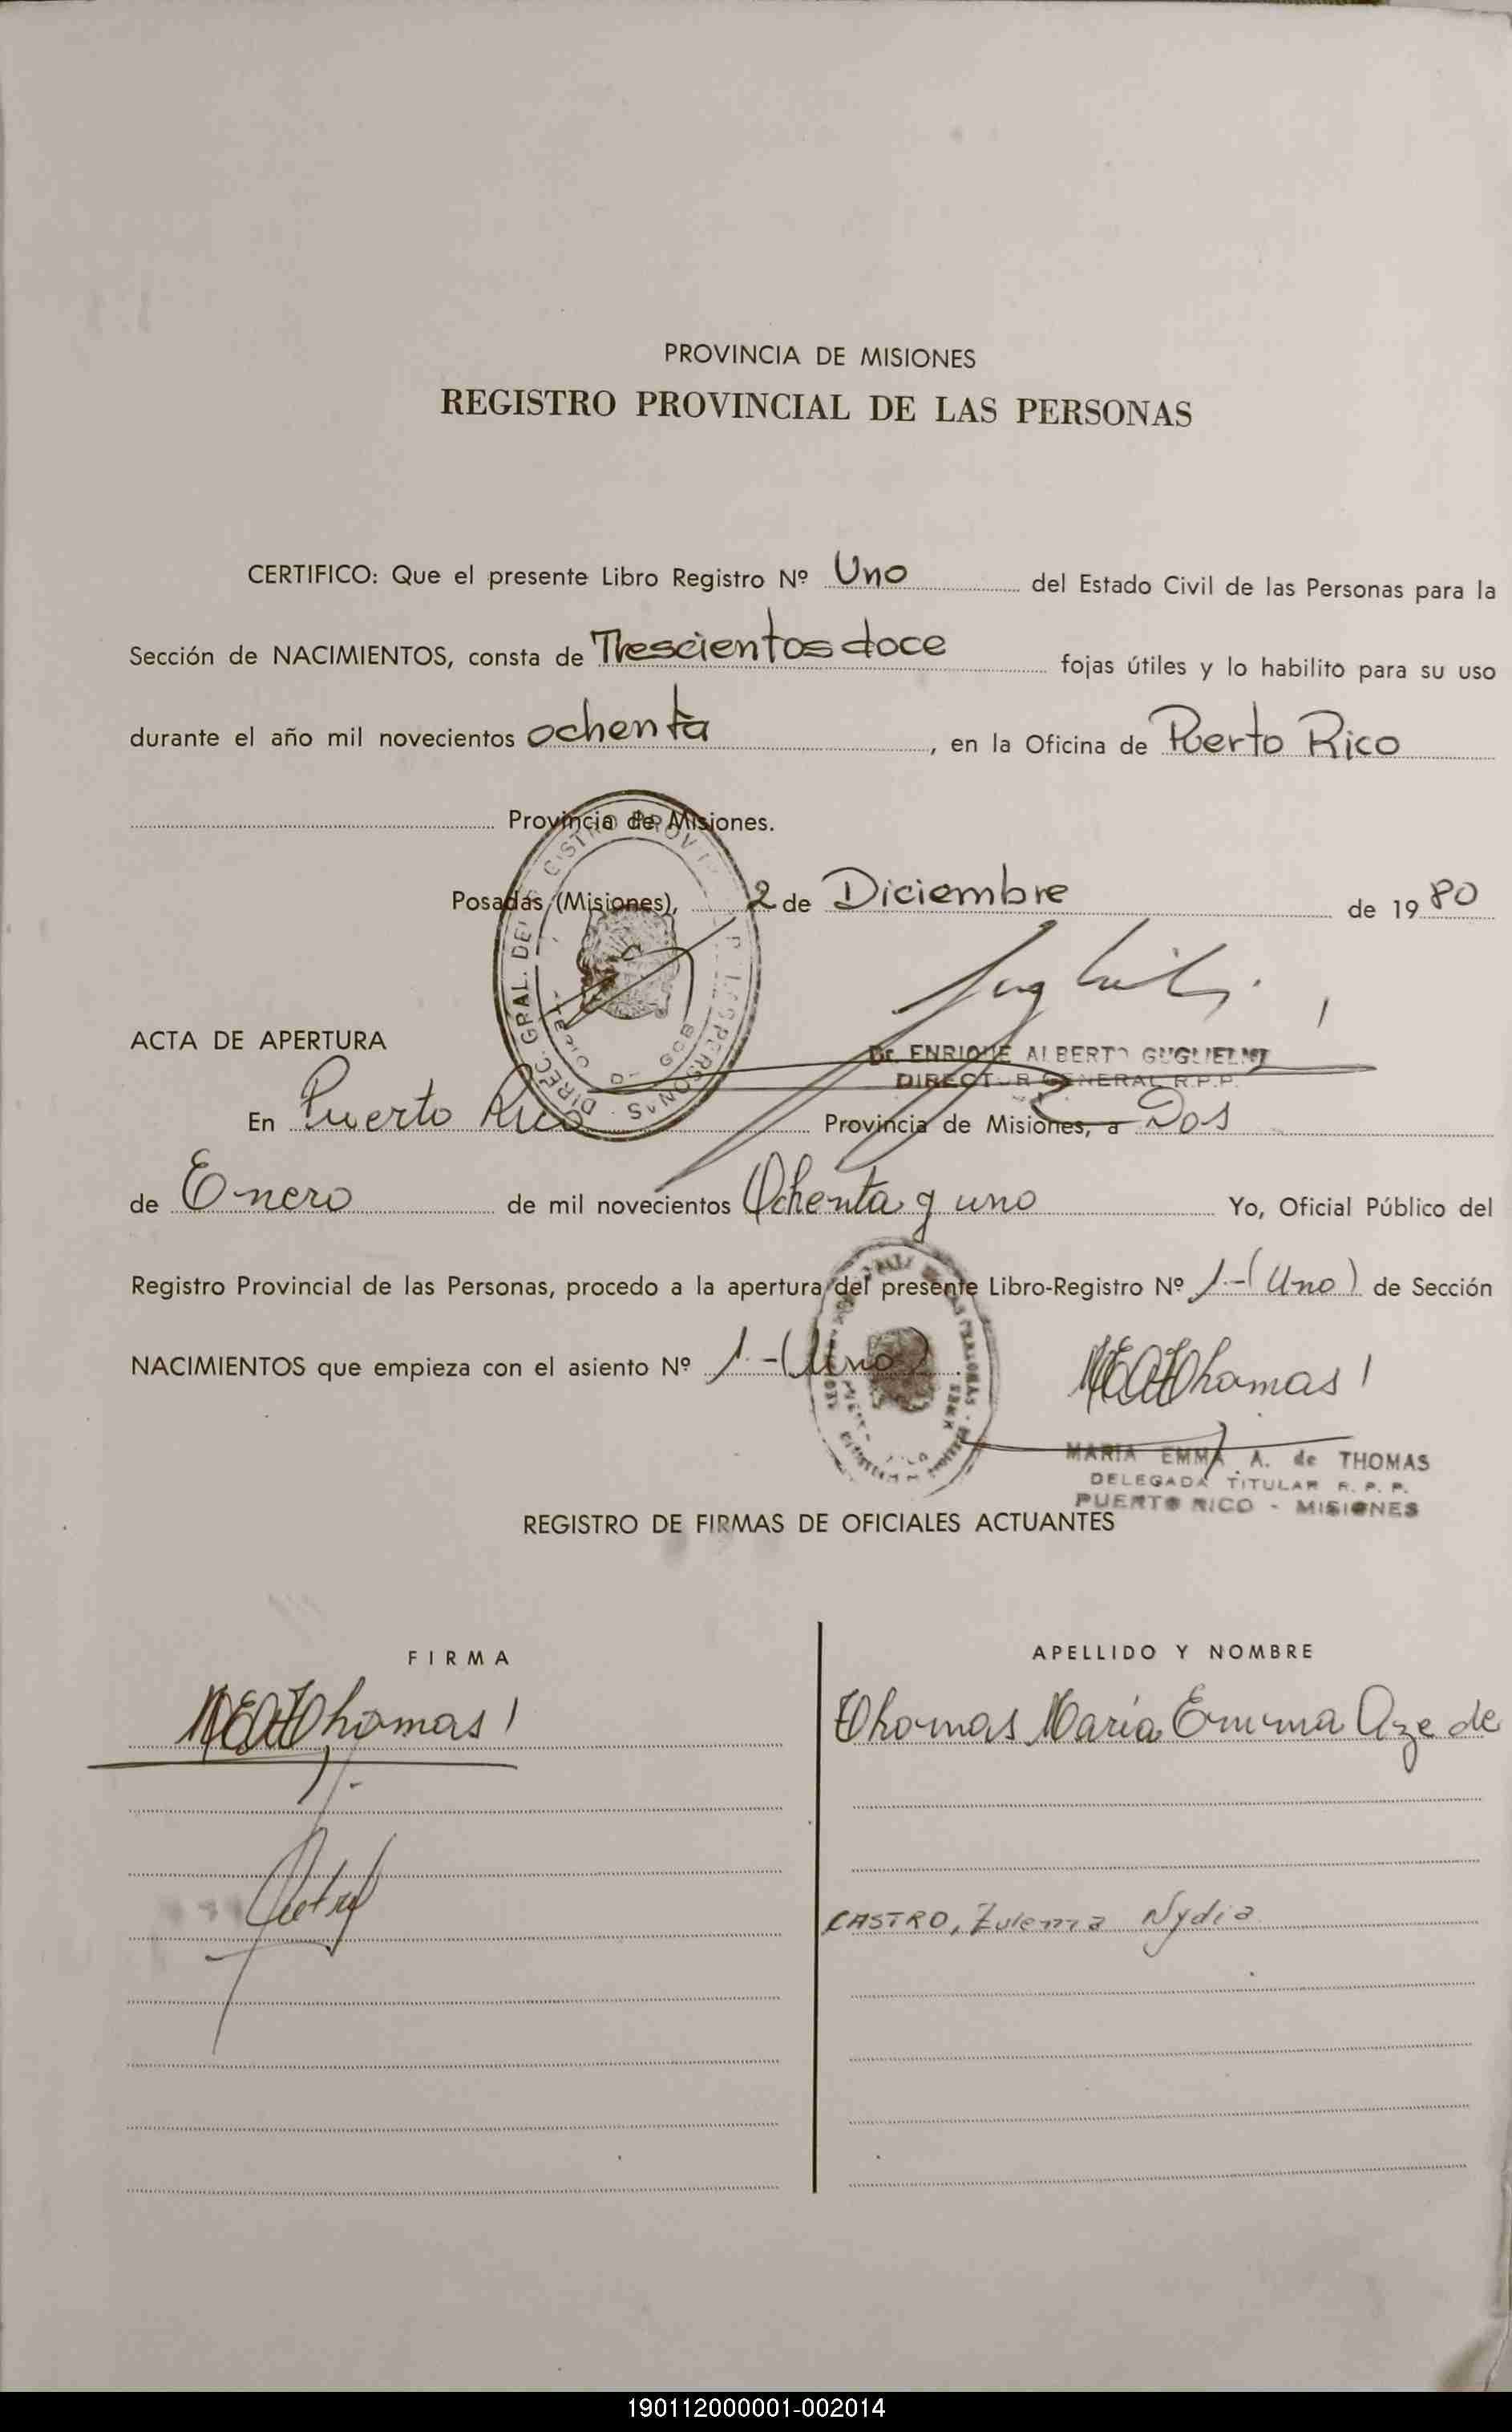 PROVINCIA DE MISIONES
REGISTRO PROVINCIAL DE LAS PERSONAS
CERTIFICO: Que el presente Libro Registro Nº Uno del Estado Civil de las Personas para la
Sección de NACIMIENTOS, consta de Trescientos doce fojas útiles y lo habilito para su uso
durante el año mil novecientos ochenta, en la Oficina de Puerto Rico
Provincia de Misiones.
Posadas (Misiones), 2 de Diciembre de 1980
Dr. ENRIQUE ALBERTO GUGLIELMI
DIRECTOR GENERAL R.P.P.
ACTA DE APERTURA
En Puerto Rico Provincia de Misiones, a Dos
de Enero de mil novecientos Ochenta y uno Yo, Oficial Público del
Registro Provincial de las Personas, procedo a la apertura del presente Libro-Registro Nº 1-(Uno) de Sección
NACIMIENTOS que empieza con el asiento Nº 1.-(Uno).
MEAThomas
MARIA EMMA A. de THOMAS
DELEGADA TITULAR R. P. P.
PUERTO RICO - MISIONES
REGISTRO DE FIRMAS DE OFICIALES ACTUANTES
FIRMA APELLIDO Y NOMBRE
MEAThomas Thomas María Emma Aze de
CASTRO, Zulema Nydia
190112000001-002014